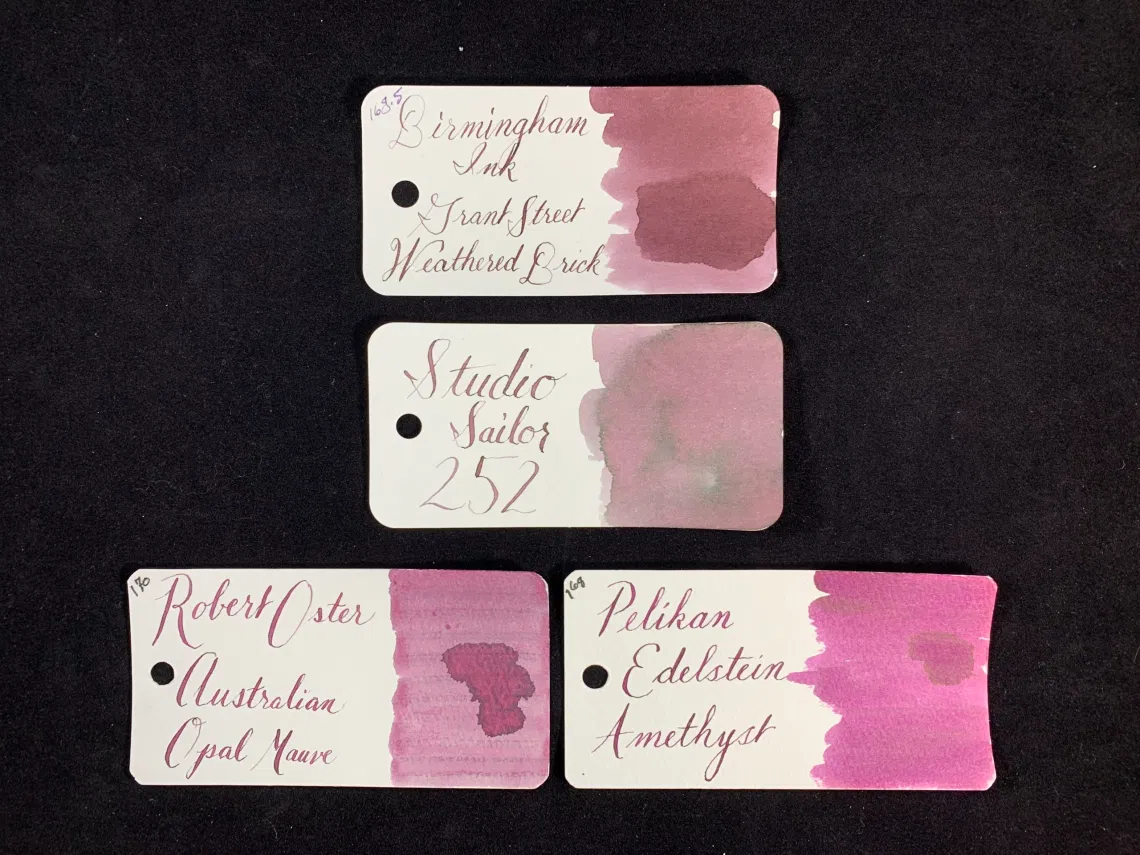 168.5
Birmingham
Ink
Grant Street
Weathered Brick
Studio
Sailor
252
170
Robert Oster
Australian
Opal Mauve
168
Pelikan
Edelstein
Amethyst